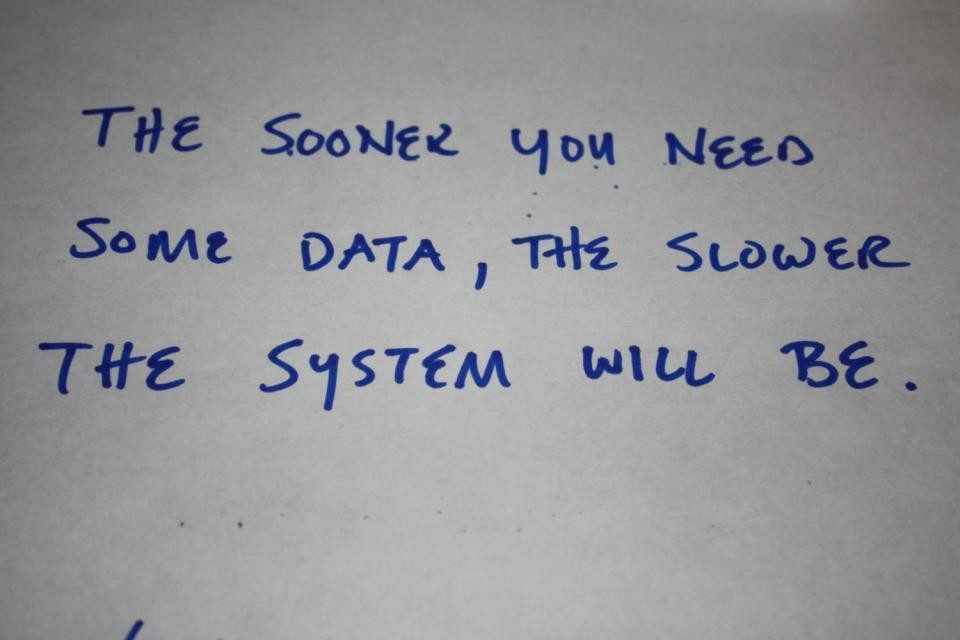 THE SOONER YOU NEED
SOME DATA, THE SLOWER
THE SYSTEM WILL BE.